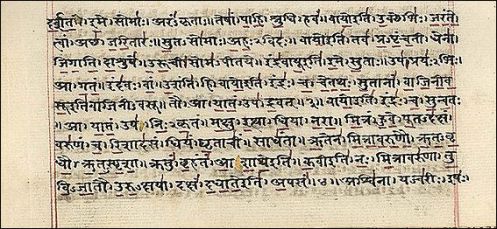 दर्शत। इमे। सोमाः। अरंकृताः। तेषां। पाहि। श्रुधि। हवं॥ वायो इति। उक्थेभिः। जरंते।
त्वां। अच्छ। जरितारः॥ सुतसोमाः। अहःविदः॥ वायो इति। तव। प्रपृंचती। धेना।
जिगाति। दाशुषे॥ उरूची। सोमपीतये॥ इंद्रवायू इति। इमे। सुताः। उप। प्रयःभिः।
आ। गतं॥ इंदवः। वां। उशंति। हि॥ वायो इति। इंद्रः। च। चेतथः। सुतानां। वाजिनीव
सू इति वाजिनीवसू॥ तौ। आ। यातं। उप। द्रवत्॥३॥ वायो इति। इंद्रः। च। सुन्वतः।
॥आ। यातं। उप। निःकृतं॥ मक्षु। इत्था। धिया। नरा॥ मित्रं। हुवे। पूतदक्षं।
वरुणं। च। रिशादसं॥ धियं। घृताचीं। साधंता॥ ऋतेन। मित्रावरुणौ। ऋतवृ
धौ। ऋतस्पृशा॥ क्रतुं। बृहंतं। आशाथे इति॥ कवी इति। नः। मित्रावरुणा। तु
विजातौ। उरुक्षया॥ दक्षं। दधाते इति। अपसं॥४॥ अश्विना। यज्वरीः। इषः।